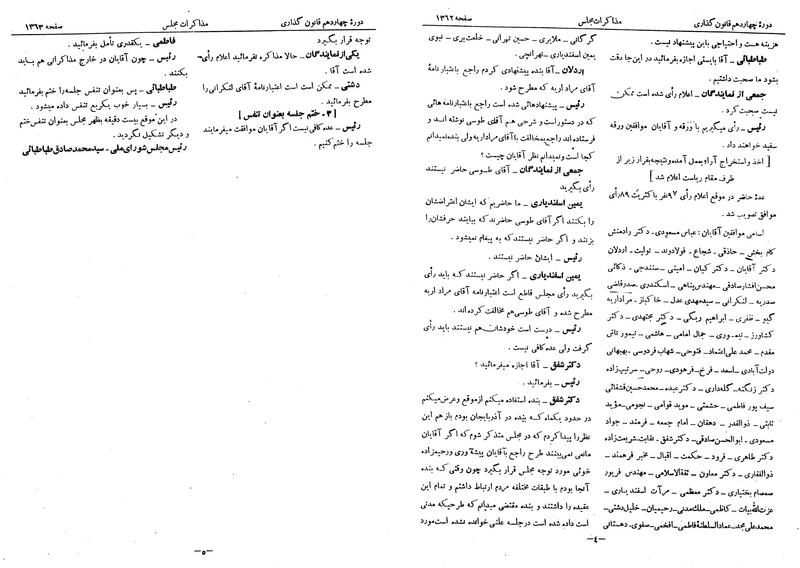 دورهٔ چهاردهم قانون گذاری
مذاکرات مجلس
صفحه ۱۳۶۲
هزینه هست و احتیاجی باین پیشنهاد نیست .
طباطبائی ـ آقا بایستی اجازه بفرمائید در این جا دقت
بشود ما صحبت داشتیم .
جمعی از نمایندگان ـ اعلام رأی شده است ممکن
نیست صحبت کرد .
رئیس ـ رأی میگیریم با ورقه و آقایان موافقین ورقه
سفید خواهند داد .
[ اخذ و استخراج آراء بعمل آمده و نتیجه بقرار زیر از
طرف مقام ریاست اعلام شد ]
عدهٔ حاضر در موقع اعلام رأی ۹۷ نفر با کثریت ۸۹ رأی
موافق تصویب شد .
اسامی موافقین آقایان : عباس مسعودی ـ دکتر رادمنش
کام بخش ـ حاذقی ـ شجاع ـ فولادوند ـ تولیت ـ اردلان
دکتر آقایان ـ دکتر کیان ـ امینی ـ سنندجی ـ ذکائی
محسن افشار صادقی ـ مهندس پناهی ـ اسکندری ـ صدر قاضی
صدریه ـ لنکرانی ـ سید مهدی عدل ـ خاکباز ـ مراد اریه
گیو ـ ظفری ـ ابراهیم ریگی ـ دکتر مجتهدی ـ دکتر
کشاورز ـ تیموری ـ جمال امامی ـ هاشمی ـ تیمورتاش
مقدم ـ محمد علی اعتماد ـ فتوحی ـ شهاب فردوسی ـ بهبهانی
دولت آبادی ـ اسعد ـ فرخ ـ فرهودی ـ روحی ـ سرتیپ زاده
دکتر زنگنه ـ گله داری ـ دکتر عبده ـ محمد حسین قشقائی
سیف پور فاطمی ـ حشمتی ـ موید قوامی ـ نجومی ـ مؤید
ثابتی ـ ذوالقدر ـ دهقان ـ امام جمعه ـ فرمند ـ جواد
مسعودی ـ ابوالحسن صادقی ـ دکتر شفق ـ نقابت ـ شریعت زاده
دکتر طاهری ـ فرود ـ حکمت ـ اقبال ـ مخبر فرهمند ـ
ذوالفقاری ـ دکتر معاون ـ ثقةالاسلامی ـ مهندس فریور
صمصام بختیاری ـ دکتر معظمی ـ مرآت اسفندیاری ـ
عزت الله بیات ـ کاظمی ـ ملک مدنی ـ رحیمیان ـ خلیل دشتی ـ
محمد علی مجد ـ عماد السلطنه فاطمی ـ افخمی ـ صفوی ـ دهستانی
گرگانی ـ ملایری ـ حسین تهرانی ـ خلعت بری ـ نبوی
یمین اسفندیاری ـ تهرانچی .
اردلان ـ آقا بنده پیشنهادی کردم راجع باعتبارنامهٔ
آقای مراد اریه که مطرح شود .
رئیس ـ پیشنهادهائی شده است راجع باعتبارنامه هائی
که در دستور است و شرحی هم آقای طوسی نوشته اند و
فرستاده اند راجع بمخالفت با آقای مراد اریه ولی بنده نمیدانم
کجا است و نمیدانم نظر آقایان چیست ؟
جمعی از نمایندگان ـ آقای طوسی حاضر نیستند
رأی بگیرید
یمین اسفندیاری ـ ما حاضریم که ایشان اعتراضشان
را بکنند اگر آقای طوسی حاضرند که بیایند حرفشان را
بزنند و اگر حاضر نیستند که به پیغام نمیشود .
رئیس ـ ایشان حاضر نیستند .
یمین اسفندیاری ـ اگر حاضر نیستند که باید رأی
بگیرید رأی مجلس قاطع است اعتبارنامه آقای مراد اریه
مطرح شده و آقای طوسی هم مخالفت کرده اند .
رئیس ـ درست است خودشان هم نیستند باید رأی
گرفت ولی عده کافی نیست .
دکتر شفق ـ آقا اجازه میفرمائید ؟
رئیس ـ بفرمائید .
دکتر شفق ـ بنده استفاده میکنم از موقع و عرض میکنم
در حدود یکماه که بنده در آذربایجان بودم باز هم این
نظر را پیدا کردم که در مجلس متذکر شوم که اگر آقایان
مانعی نمی بینند طرح راجع بآقایان پیشه وری و رحیم زاده
خوئی مورد توجه مجلس قرار بگیرد چون وقتی که بنده
آنجا بودم با طبقات مختلفه مردم ارتباط داشتم و تمام این
عقیده را داشتند و بنده مقتضی میدانم که طرحیکه مدتی
است داده شده است در جلسه علنی خوانده نشده است مورد
ـ۴ـ
دورهٔ چهاردهم قانون گذاری
مذاکرات مجلس
صفحه ۱۳۶۳
توجه قرار بگیرد
یکی از نمایندگان ـ حالا مذاکره نفرمائید اعلام رأی
شده است آقا .
دشتی ـ ممکن است است اعتبارنامهٔ آقای لنکرانی را
مطرح بفرمائید .
[ ۳ ـ ختم جلسه بعنوان تنفس ]
رئیس ـ عده کافی نیست اگر آقایان موافقت میفرمایند
جلسه را ختم کنیم .
فاطمی ـ یکقدری تأمل بفرمائید .
رئیس ـ چون آقایان در خارج مذاکراتی هم باید
بکنند .
طباطبائی ـ پس بعنوان تنفس جلسه را ختم بفرمائید
رئیس ـ بسیار خوب یکربع تنفس داده میشود .
در این موقع بیست دقیقه بظهر مجلس بعنوان تنفس ختم
و دیگر تشکیل نگردید .
رئیس مجلس شورای ملی ـ سید محمد صادق طباطبائی
ـ۵ـ